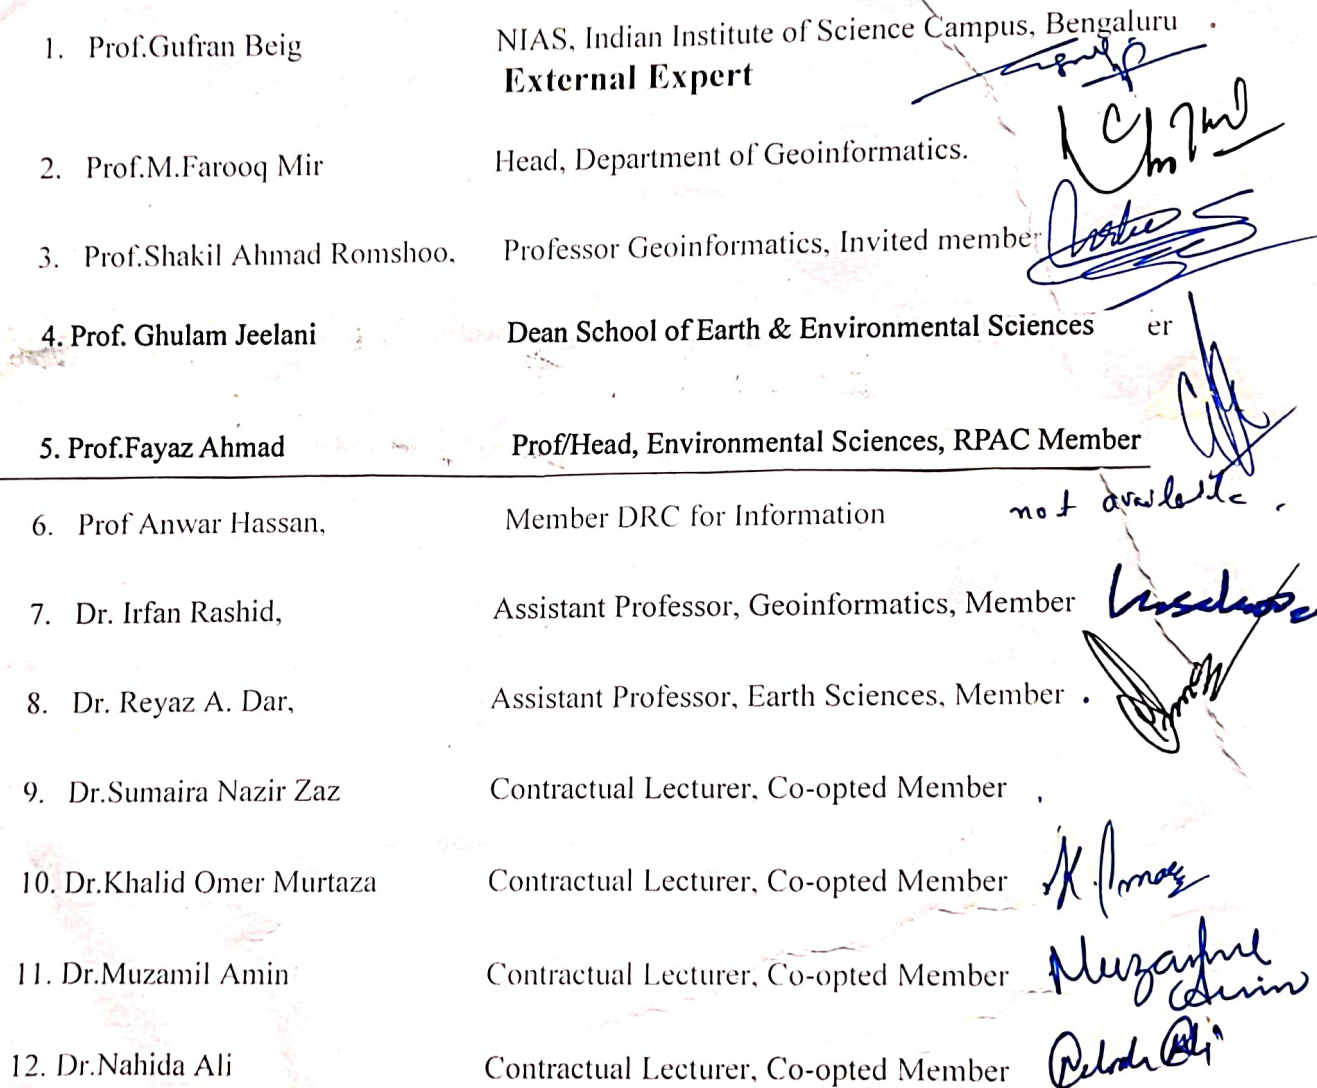 1. Prof.Gufran Beig NIAS, Indian Institute of Science Campus, Bengaluru
External Expert
2. Prof.M.Farooq Mir Head, Department of Geoinformatics.
3. Prof.Shakil Ahmad Romshoo, Professor Geoinformatics, Invited member
4. Prof. Ghulam Jeelani Dean School of Earth & Environmental Sciences er
5. Prof.Fayaz Ahmad Prof/Head, Environmental Sciences, RPAC Member
6. Prof Anwar Hassan, Member DRC for Information not available.
7. Dr. Irfan Rashid, Assistant Professor, Geoinformatics, Member
8. Dr. Reyaz A. Dar, Assistant Professor, Earth Sciences, Member
9. Dr.Sumaira Nazir Zaz Contractual Lecturer, Co-opted Member
10. Dr.Khalid Omer Murtaza Contractual Lecturer, Co-opted Member
11. Dr.Muzamil Amin Contractual Lecturer, Co-opted Member
12. Dr.Nahida Ali Contractual Lecturer, Co-opted Member